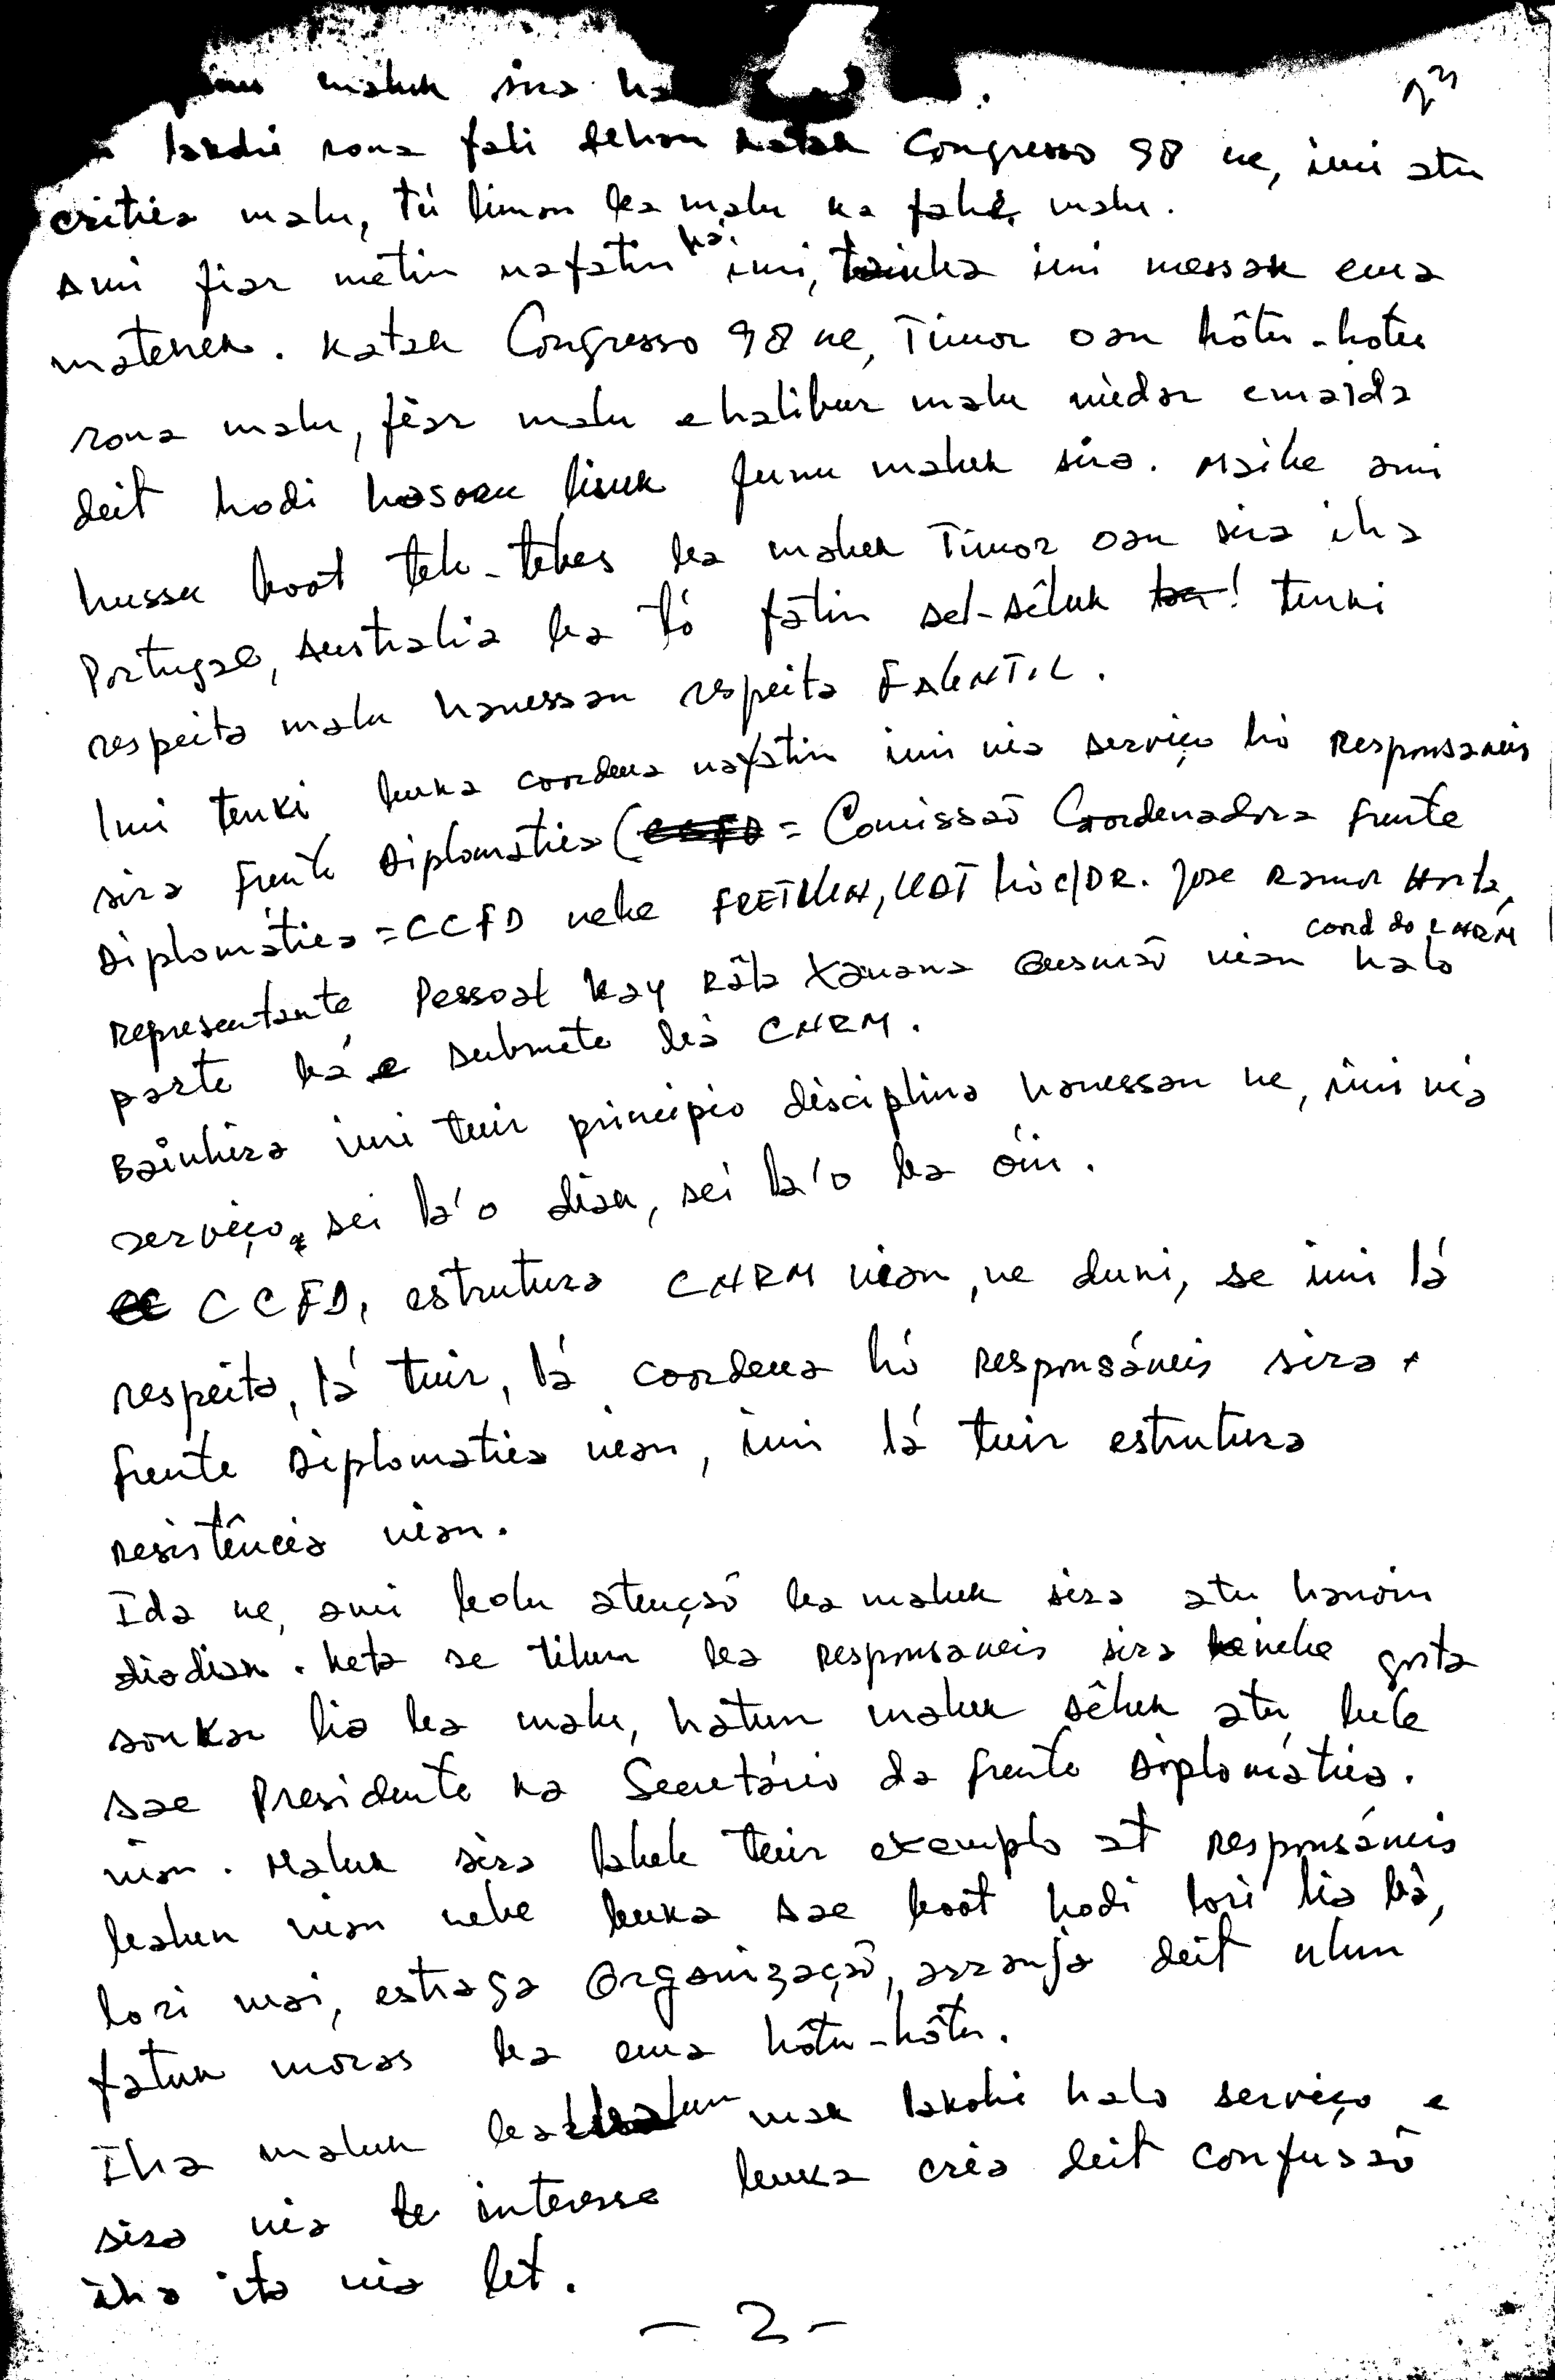 maluk sira
23
lakohi rona fali dehan katak Congresso 98 ne, imi atu
critica malu, tú liman ba malu ka fahe malu.
Ami fiar metin nafatin ba imi, tainba imi messak ema
matenek. Katak Congresso 98 ne, Timor oan hôtu-hotu
rona malu, fiar malu e halibur malu nùdar emaida
deit hodi hasoru lisuk funu maluk sira. Maibe ami
hussu boot teb-tebes ba maluk Timor oan sira iha
Portugal, Australia ba tó fatin sel-sêluk! Tenki
respeita malu hanessan respeita FALINTIL.
Imi tenki buka coordena nafatin imi nia serviço hó Responsaveis
sira Frente Diplomatica (CCFD = Comissaõ Coordenadora Frente
Diplomática = CCFD nebe FRETILIN, UDT hó c/DR. Jose Ramos Horta,
Representante Pessoal Kay Râla Xanana Gusmaõ nian cord do CNRM halo
parte bá e submete bá CNRM.
Bainhira imi tuir principio disciplina hanessan ne, imi nia
serviço sei la'o diak, sei la'o ba óin.
CCFD, estrutura CNRM nian, ne duni, se imi lá
respeita, lá tuir, lá coordena hó Responsáveis sira
Frente Diplomatica nian, imi lá tuir estrutura
Resistência nian.
Ida ne, ami bolu atençaõ ba maluk sira atu hanoin
diadiak. Keta se tilun ba Responsaveis sira nebe gosta
sonkar lia ba malu, hatun maluk sêluk atu bele
sae Presidente ka Secretário da Frente Diplomática.
nian. Maluk sira labele tuir exemplo at Responsáveis
balun nian nebe buka sae boot hodi lori lia bá,
lori mai, estraga Organizaçaõ, arranja deit ulun
fatuk moras ba ema hôtu-hôtu.
Iha maluk balun mak lakohi halo serviço e
sira nia interesse buka cria deit confusaõ
iha ita nia let.
- 2 -